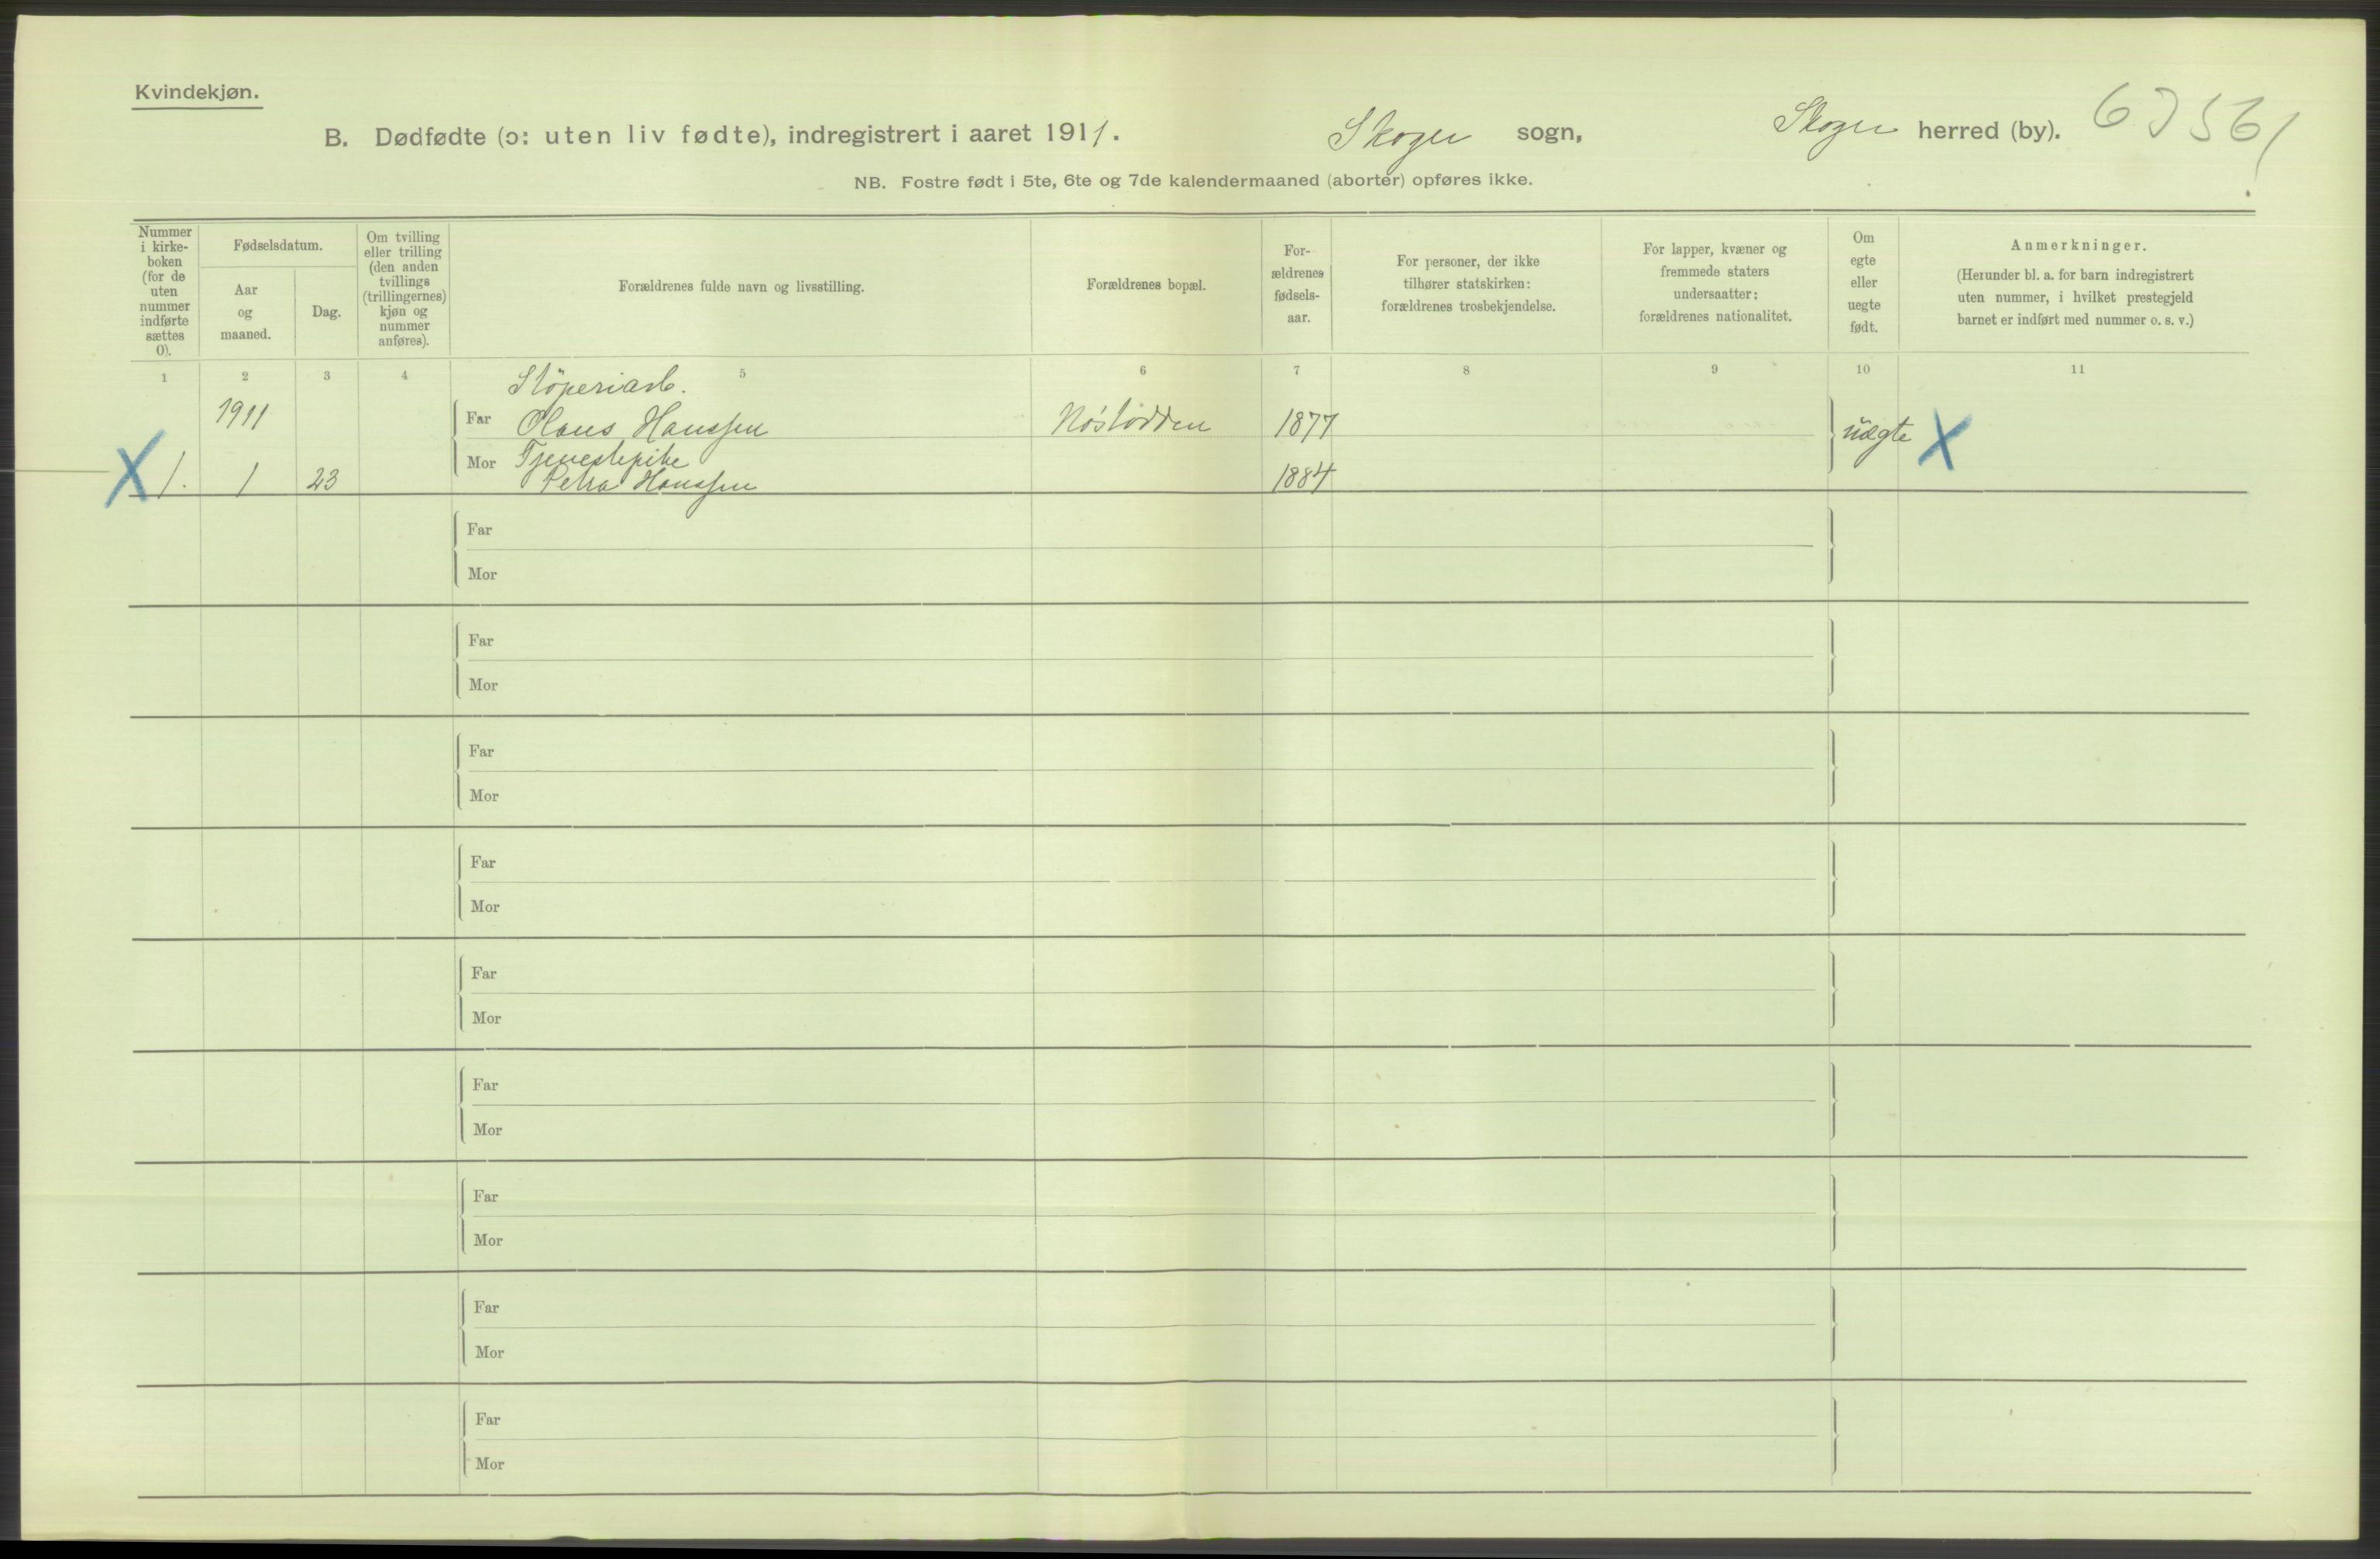 Kvindekjøn.
B. Dødfødte (ɔ: uten liv fødte), indregistrert i aaret 1911. Skoger sogn, Skoger herred (by).
NB. Fostre født i 5te, 6te og 7de kalendermaaned (aborter) opføres ikke.
Nummer
i kirke-
boken
(for de
uten
nummer
indførte
sættes
0).
Fødselsdatum.
Aar
og
maaned.
Dag.
Om tvilling
eller trilling
(den anden
tvillings
(trillingernes)
kjøn og
nummer
anføres).
Forældrenes fulde navn og livsstilling.
Forældrenes bopæl.
For-
ældrenes
fødsels-
aar.
For personer, der ikke
tilhører statskirken:
forældrenes trosbekjendelse.
For lapper, kvæner og
fremmede staters
undersaatter:
forældrenes nationalitet.
Om
egte
eller
uegte
født.
Anmerkninger.
(Herunder bl. a. for barn indregistrert
uten nummer, i hvilket prestegjeld
barnet er indført med nummer o. s. v.)
1 2 3 4 5 6 7 8 9 10 11
Støperiarb.
1911 Far Olaus Hanssen 1877 uegte X
Mor Tjenestepike
X 1. 1 23 Petra Hanssen 1884
Far
Mor
Far
Mor
Far
Mor
Far
Mor
Far
Mor
Far
Mor
Far
Mor
Far
Mor
Far
Mor